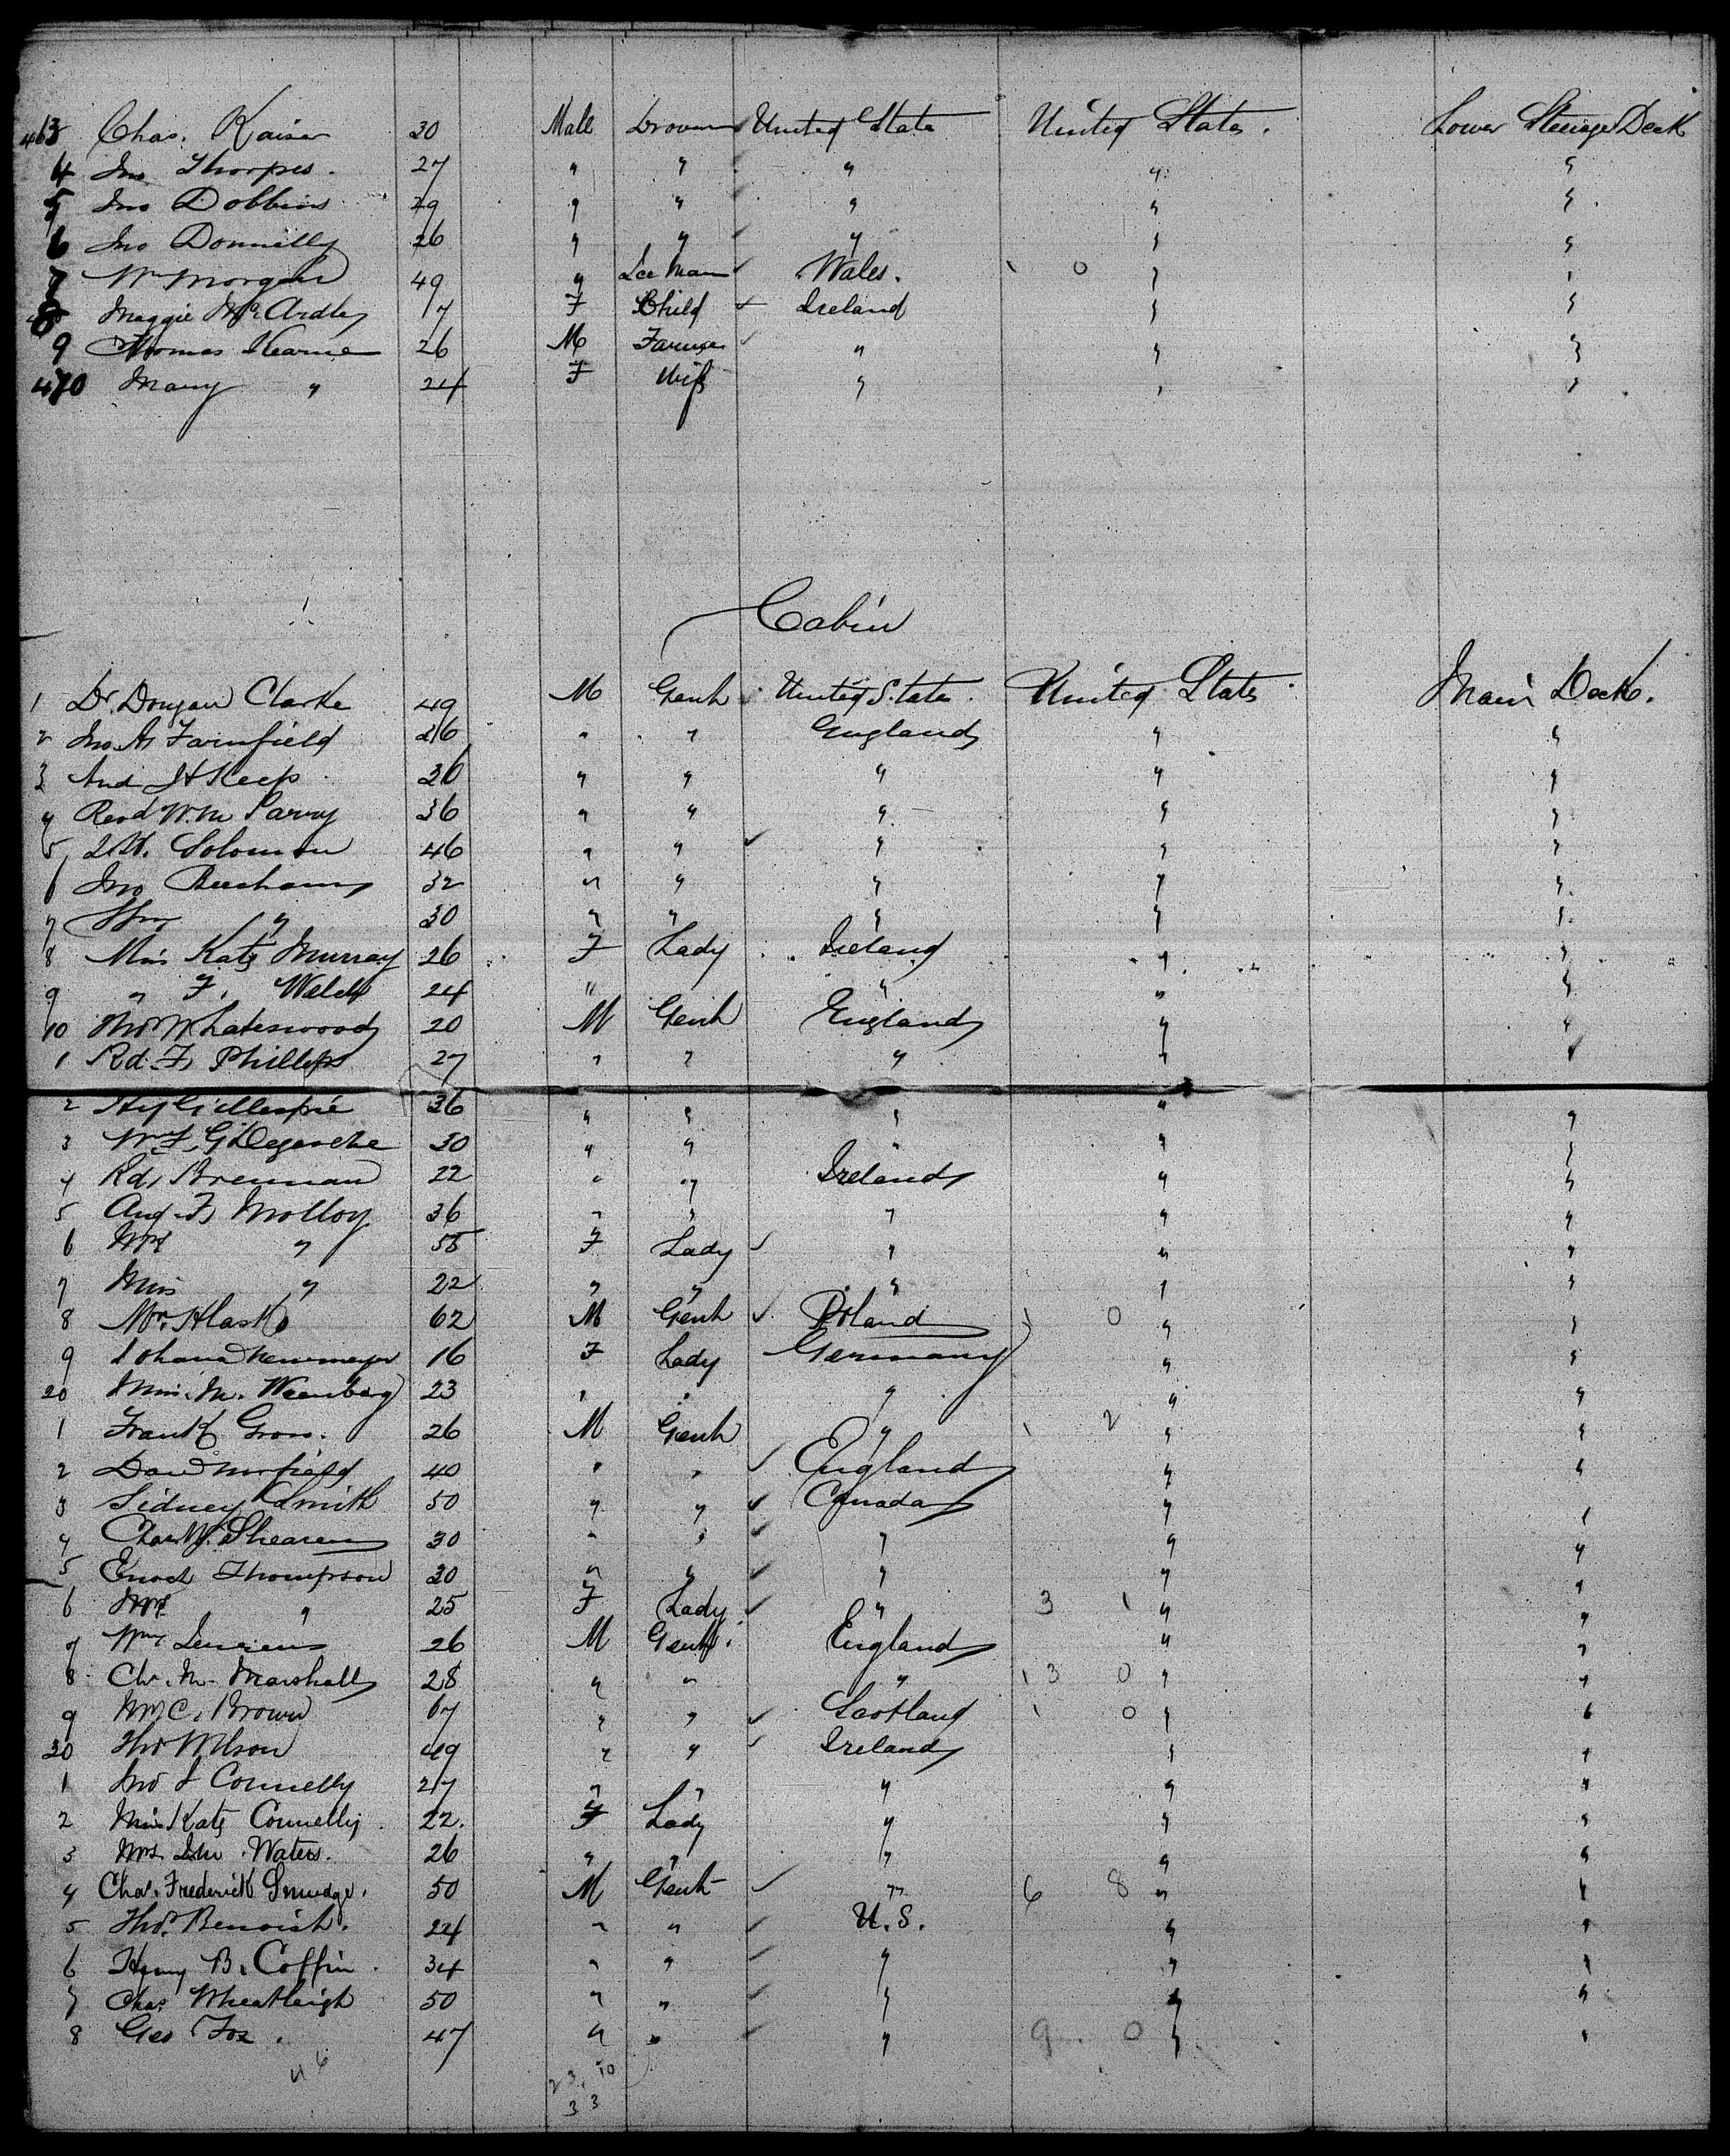 463 Chas. Kaiser 30 Male Drover United State United States. Lower Steerage Deck
4 Jno Thorpes. 27 " " " " "
5 Jno Dobbins 29 " " " " "
6 Jno Donnelly 26 " " " " "
7 Wm Morgan 49 " Wales. 1 0 " "
8 Maggie McArdle 17 F Child Ireland " "
9 Thomas Kearne 26 M Farmer " " "
470 Mary " 24 F Wife " " "
Cabin
1 Dr. Dougan Clarke 49 M Gent United State. United States Main Deck.
2 Jno. A. Farnfield 26 " " England " "
3 And J H Keep 26 " " " " "
4 Revd W. M Parry 36 " " " " "
5 Solomon 46 " " " " "
6 Jno Beecham 32 " " " " "
7 " 30 " " " " "
8 Miss Kate Murray 26 F Lady Ireland " "
9 " F. Walsh 24 " " " "
10 Thos 20 M Gent England " "
1 Rd. F. Phillips 27 " " " " "
2 Hy Gillespie 36 " " " " "
3 Wm F. G. 30 " " " " "
4 Rd. Brennan 22 " " Ireland " "
5 Aug. F. Molloy 36 " " " " "
6 Mrs " 55 F Lady " " "
7 Miss " 22 " " " " "
8 Mr. Hlasko 62 M Gent Poland 1 0 " "
9 Johana Newmeyer 16 F Lady Germany " "
20 Miss. M. Weenberg 23 " " " " "
1 Frank Gross. 26 M Gent " 1 2 " "
2 40 " " England " "
3 Sidney Smith 50 " " Canada " "
4 Chas W. Shearer 30 " " " " "
5 Enoch Thompson 30 " " " " "
6 Mrs " 25 F Lady " 3 1 " "
7 Wm 26 M Gent. England " "
8 Ch. M. Marshall 28 " " " 13 0 " "
9 Wm C. Brown 67 " " Scotland 1 0 " "
30 Thos Wilson 49 " " Ireland " "
1 Jno J Connelly 27 " " " " "
2 Miss Kate Connelly 22. F Lady " " "
3 Mrs Waters. 26 " " " " "
4 Chas. Frederick Smudge. 50 M Gent " 6 8 " "
5 Thos. Benoist. 24 " " U. S. " "
6 Henry B. Coffin. 34 " " " " "
7 Chas Wheatleigh 50 " " " " "
8 Geo Fox. 47 " " " 9. 0 " "
46 23. 10
33